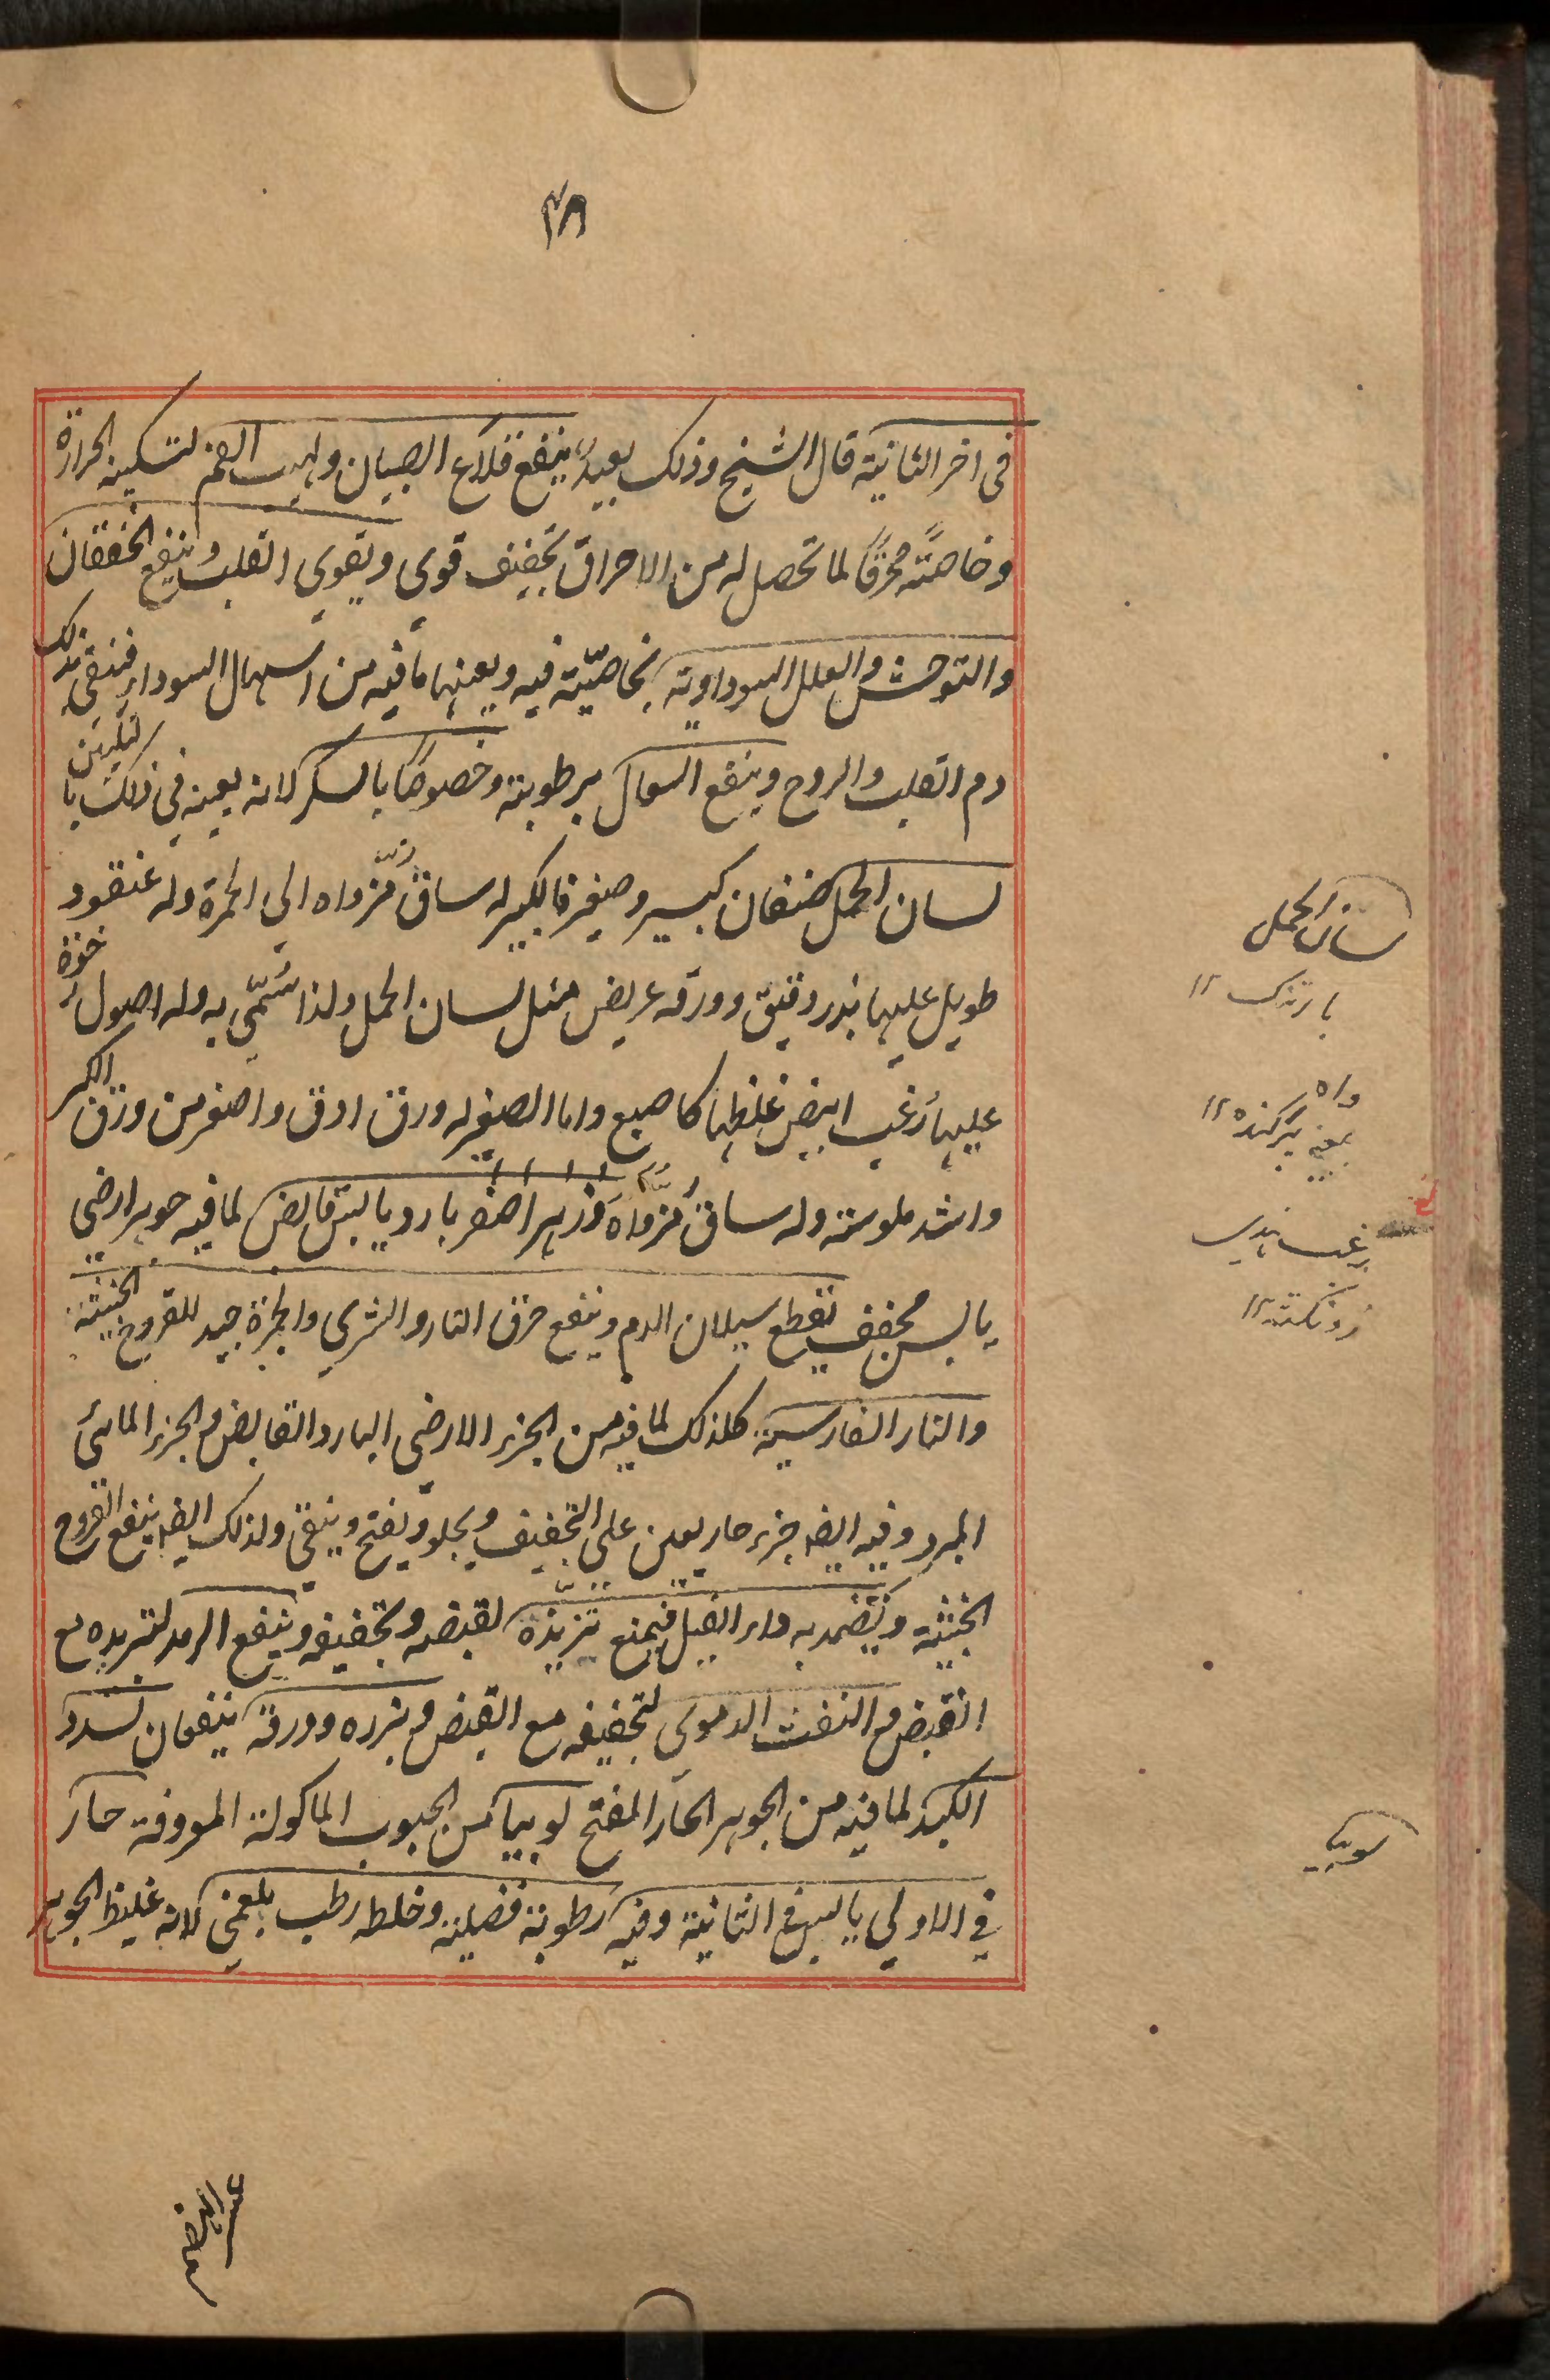 في اخر الثانية قال الشيخ وذلك بعيد ينفع قلاع الصبيان ولهيب الفم لتسكينه الحرارة
وخاصته محرقًا لما تحصل له من الاحراق تجفيف قوي ويقوي القلب وينفع الخفقان
والتوحش والعلل السوداوية بخاصيّته فيه ويعينها ما فيه من اسهال السوداء فينقي بذلك
دم القلب والروح وينفع السعال برطوبته وخصوصًا بالسكر لانه يعينه في ذلك بالتليين
لسان الحمل صنفان كبير وصغير فالكبير له ساق مُزّواه الي الحمرة وله عنقود
طويل عليها بذر دقيق وورقه عريض مثل لسان الحمل ولذا سُمّي به وله اصول رخوة
عليها زغب ابيض غلظها كاصبع واما الصغير له ورق ادق واصغر من ورق الكبير
واشد ملوسته وله ساق مُزّواه وزهر اصفر بارد يابس قابض لما فيه جوهر ارضي
يابس مجفف يقطع سيلان الدم وينفع حرق النار والشري والحمرة جيد للقروح الخبيثة
والنار الفارسية كلذلك لما فيه من الجزء الارضي البارد القابض والجزء المائي
المبرد وفيه ايضه جزء حار يعين علي التجفيف ويجلو ويفتح وينقي ولذلك ايضه ينفع القروح
الخبيثة ويضمد به داء الفيل فيمنع تزيّده لقبضه وتجفيفه وينفع الرمد لتبريده مع
القبض والنفث الدموي لتجفيفه مع القبض وبزره وورقه ينفعان لسدد
الكبد لما فيه من الجوهر الحار المفتح لوبيا من الحبوب الماكولة المعروفة حار
في الاولي يابس في الثانية وفيه رطوبة فضلية وخلطه رطب بلغمي لانه غليظ الجوهر
لسان الحمل
بارتنگ ١٢
واه
بمعنى پرکنده ١٢
زغب
لوبيا
عسر الهضم